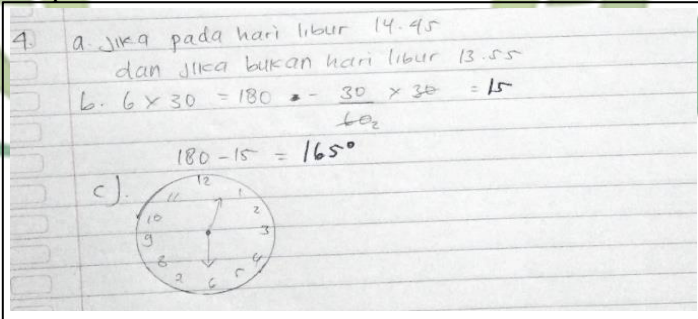 4. a. Jika pada hari libur 14.45
dan jika bukan hari libur 13.55
b. 6 x 30 = 180 - 30/60₂ x 30 = 15
180 - 15 = 165°
c).
12
11 1
10 2
9 3
8 4
7 5
6